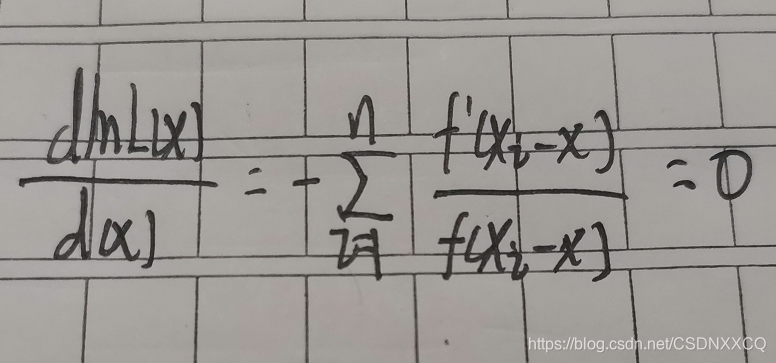 dlnL(x) / d(x) = - n∑i=1 f'(xi-x) / f(xi-x) = 0
https://blog.csdn.net/CSDNXXCQ